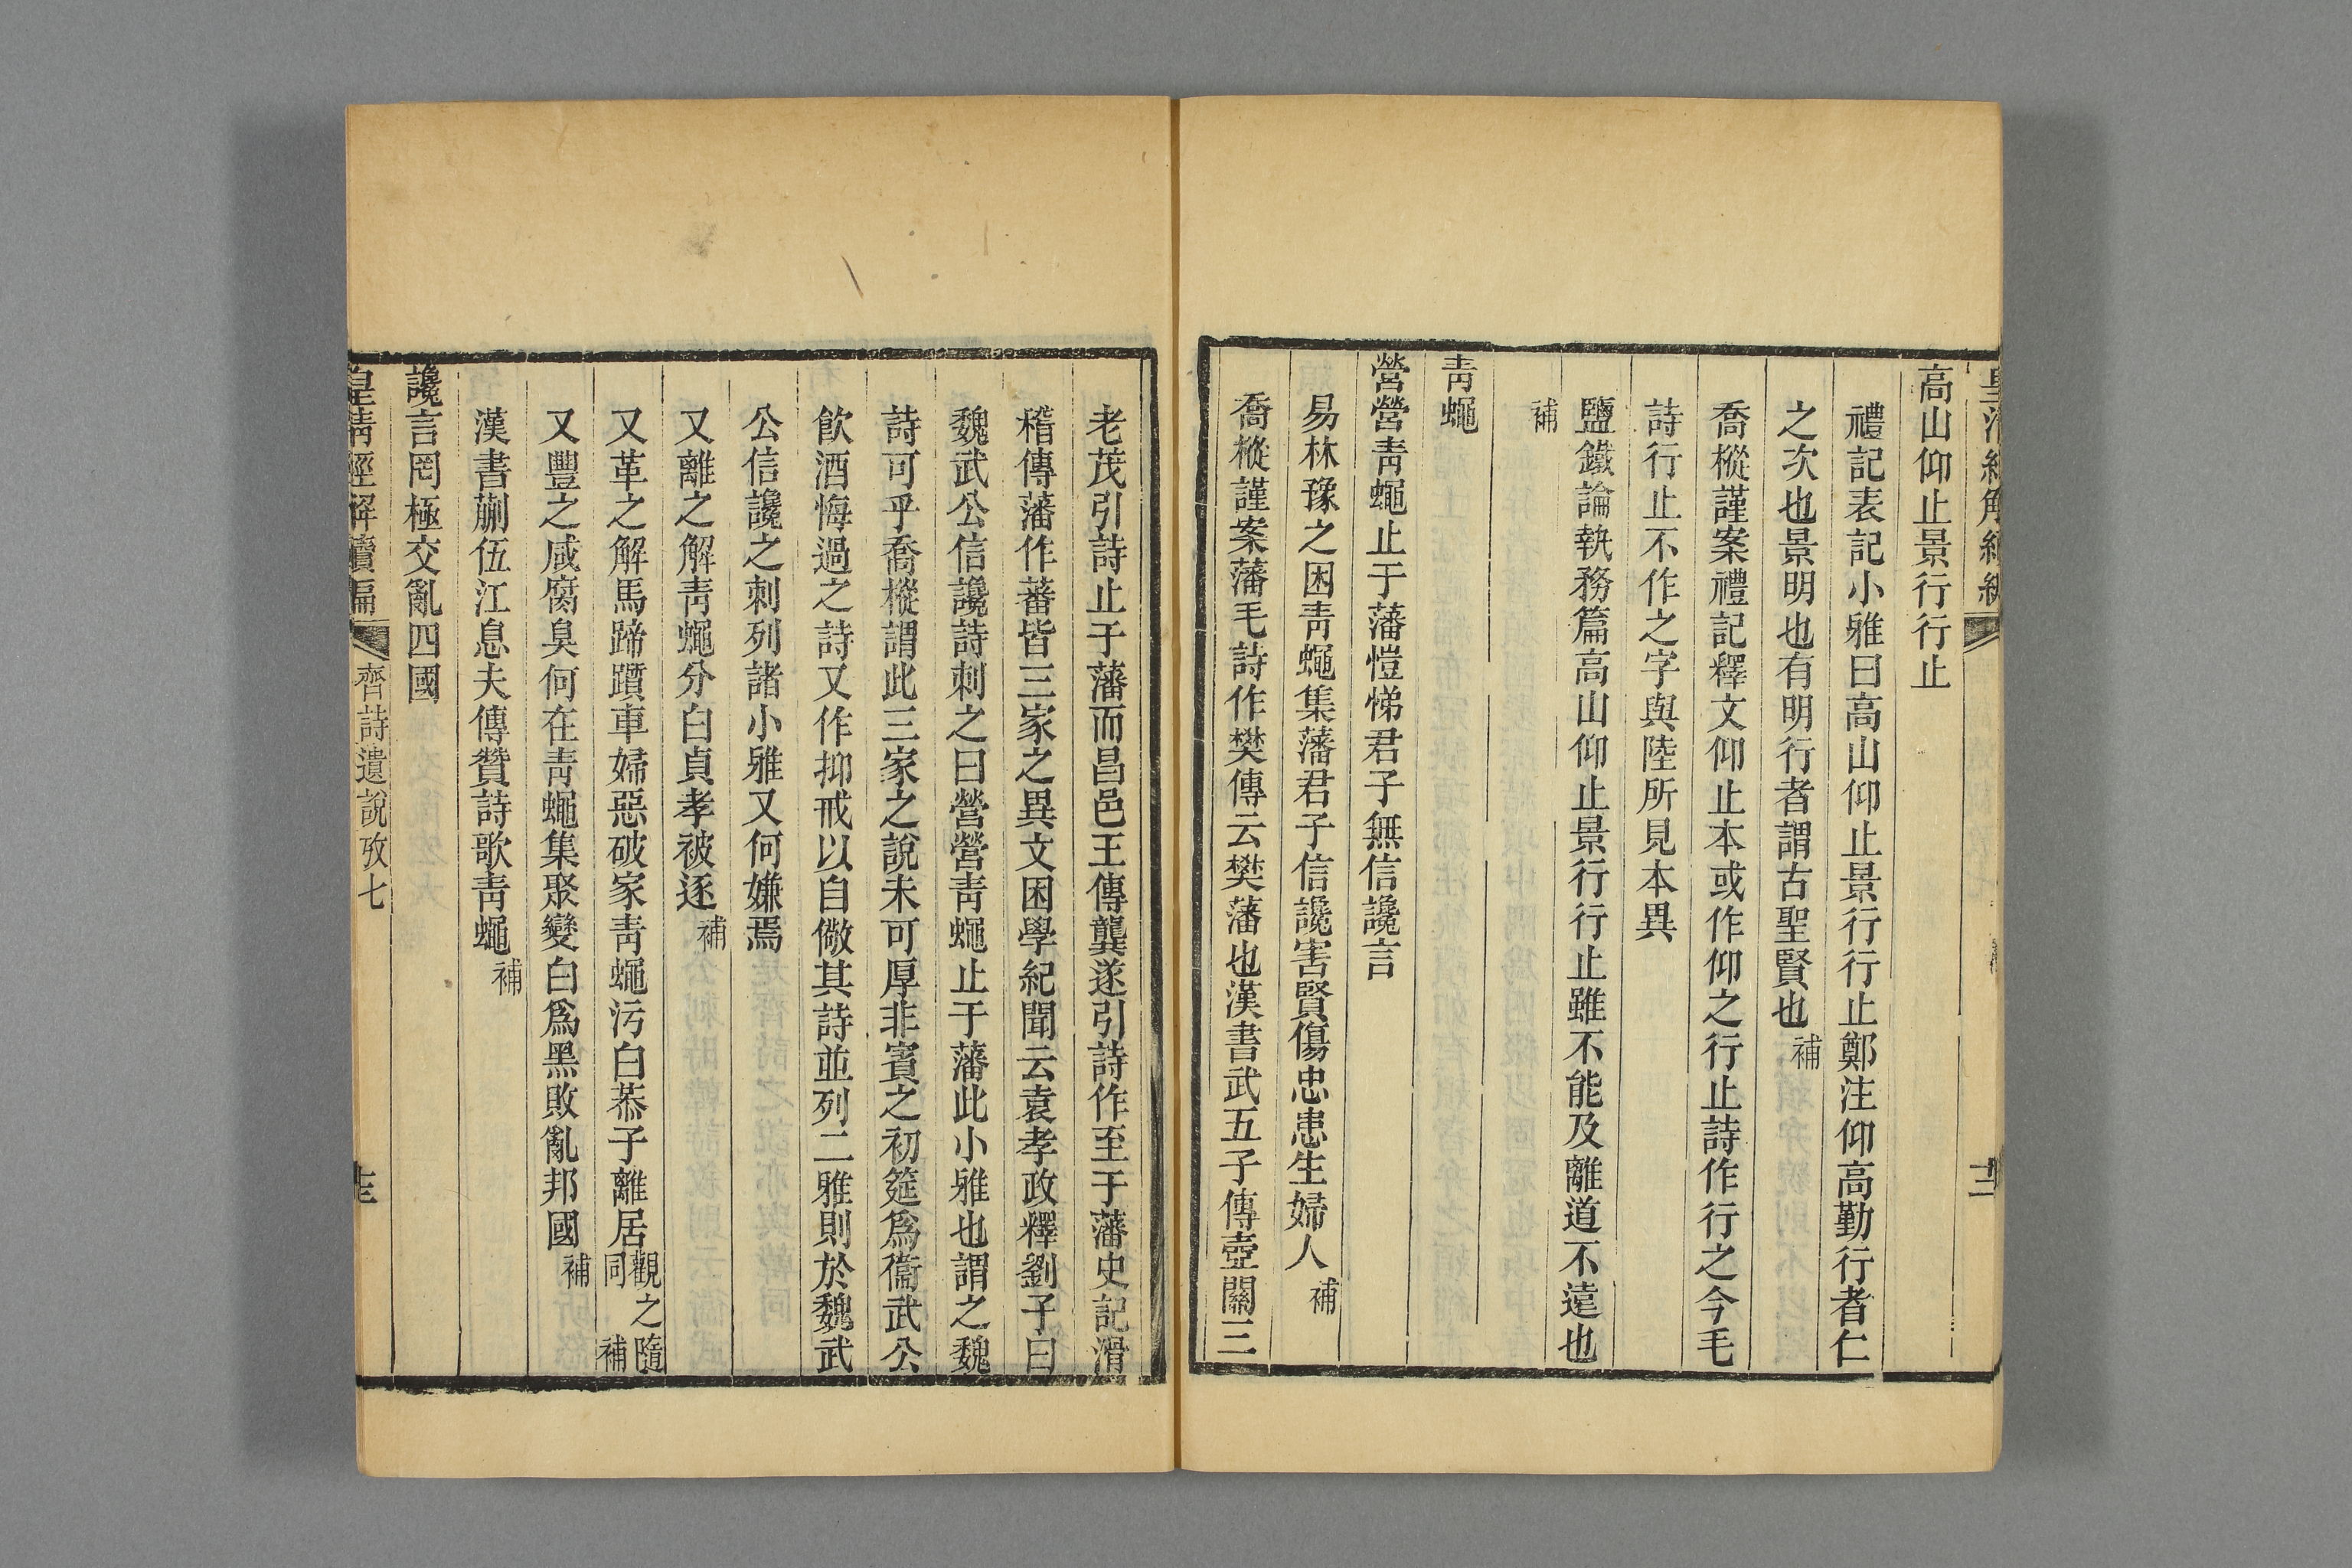 高山仰止景行行止
禮記表記小雅曰高山仰止景行行止鄭注仰高勤行者仁
之次也景明也有明行者謂古聖賢也補
喬樅謹案禮記釋文仰止本或作仰之行止詩作行之今毛
詩行止不作之字與陸所見本異
鹽鐵論執務篇高山仰止景行行止雖不能及離道不遠也
補
靑蠅
營營靑蠅止于藩愷悌君子無信讒言
易林豫之困靑蠅集藩君子信讒害賢傷忠患生婦人補
喬樅謹案藩毛詩作樊傳云樊藩也漢書武五子傳壺關三
老茂引詩止于藩而昌邑王傳龔遂引詩作至于藩史記滑
稽傳藩作蕃皆三家之異文困學紀聞云袁孝政釋劉子曰
魏武公信讒詩刺之曰營營靑蠅止于藩此小雅也謂之魏
詩可乎喬樅謂此三家之說未可厚非賓之初筵爲衞武公
飮酒悔過之詩又作抑戒以自儆其詩並列二雅則於魏武
公信讒之刺列諸小雅又何嫌焉
又離之解靑蠅分白貞孝被逐補
又革之解馬蹄躓車婦惡破家靑蠅污白恭子離居觀之隨同補
又豐之咸腐臭何在靑蠅集聚變白爲黑敗亂邦國補
漢書蒯伍江息夫傳贊詩歌靑蠅補
讒言罔極交亂四國
皇淸經解續編 齊詩遺說攷七